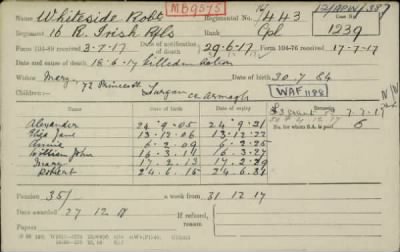 MB9575
13/APW/387
Name Whiteside Robt Regimental No. 16/443 Case No. 1239
Regiment 16 R. Irish Rfls Rank Cpl
Form 104-89 received 3-7-17 Date of notification of death 29-6-17 Form 104-76 received 17-7-17
Date and cause of death 18-6-17 Killed in Action
Wife Mary, 72 Princess St Date of birth 30-7-84
Children:- Lurgan Co Armagh WAF 1188
Date of birth
Alexander 24-9-05 24-9-21
Eliza Jane 13-12-06 13-12-22
Annie 6-2-09 6-2-25
William John 16-3-11 16-3-27
Mary 17-2-13 17-2-29
Robert 24-6-15 24-6-31
No. for whom S.A. is paid 6
Pension 35/- a week from 31.12.17
Date awarded 27.12.17 If refused, reason
Papers: